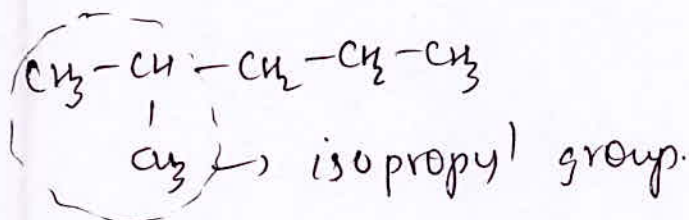 CH₃-CH-CH₂-CH₂-CH₃
|
CH₃ → isopropyl group.